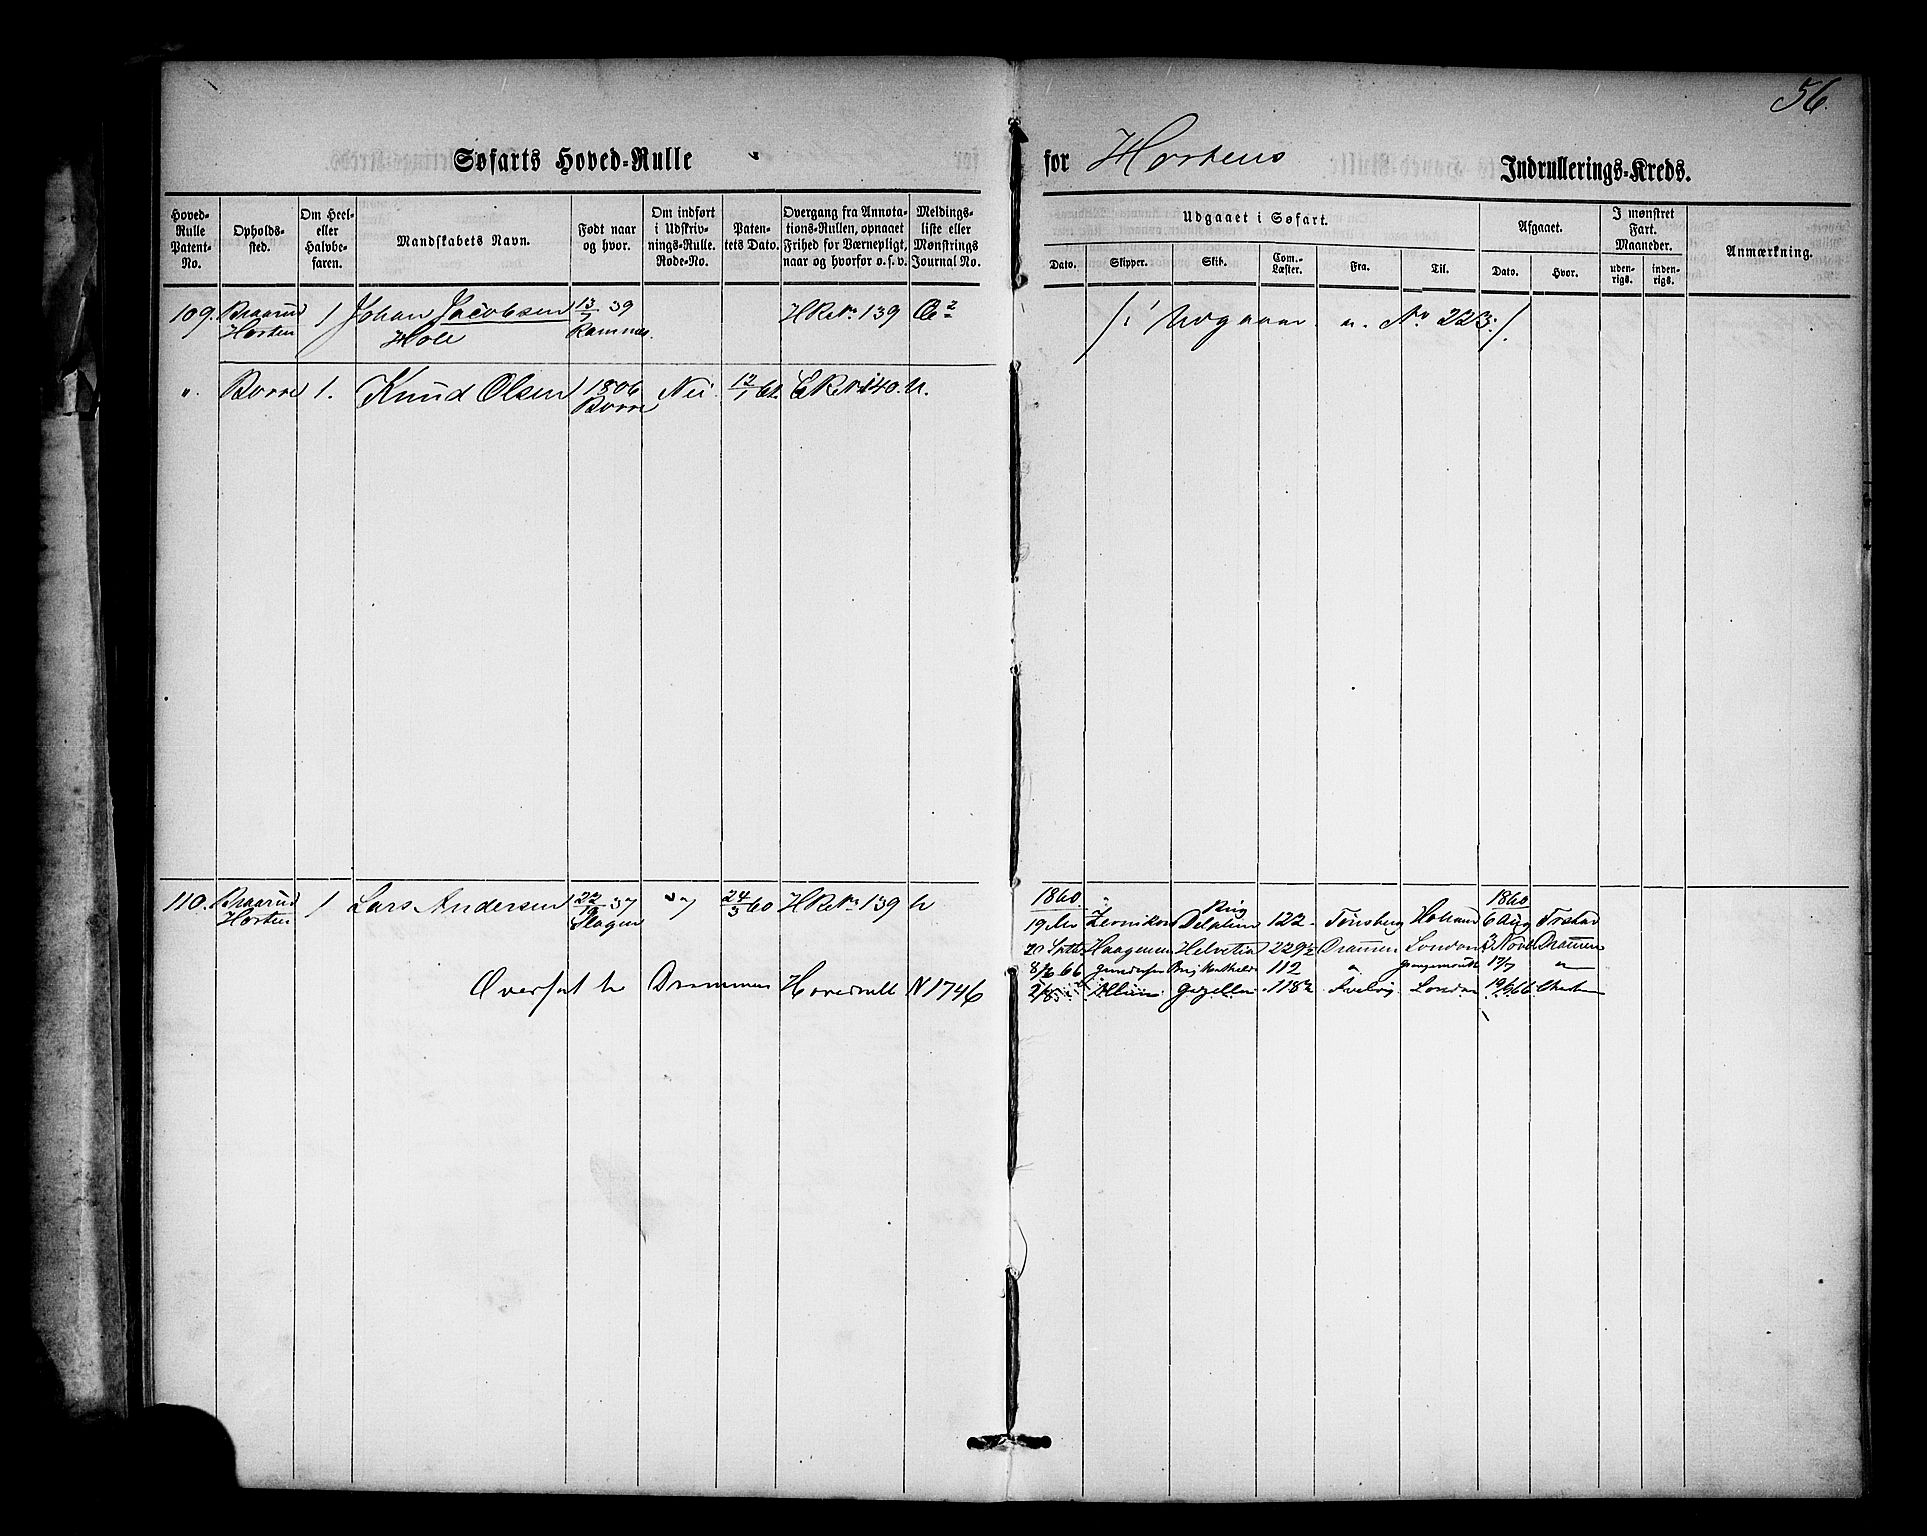 56.
Søfarts Hoved-Rulle for Hortens Indrullerings-Kreds.
Hoved-Rulle Patent-No.
Opholds-sted.
Om Heel- eller Halvbe-faren.
Mandskabets Navn.
Født naar og hvor.
Om indført i Udskriv-nings-Rulle. Rode-No.
Paten-tets Dato.
Overgang fra Annota-tions-Rullen, opnaaet Frihed for Værnepligt, naar og hvorfor o. s. v.
Meldings-liste eller Mønstrings Journal No.
Udgaaet i Søfart.
Dato. Skipper. Skib. Com.-Læster. Fra. Til.
Afgaaet.
Dato. Hvor.
I mønstret Fart. Maaneder.
uden-rigs. inden-rigs.
Anmærkning.
109. Braarud 1 Johan Jacobsen 13/7 39 H R No 139
Horten Hole Ramnes.
/: Udgaaer, No 223 :/
". Borre 1. Knud Olsen 1806 Nei 12/7 61. 140.
Borre
110. Braarud 1 Lars Andersen 22/10 37 24/3 60 H R No 139
Horten Slagen
1860 " Brig 1860
19 Delphin 122 Tønsberg Holland 6 Aug
20 Haagensen Helvetia 229½ Drammen London 3 Novb Drammen
8/6 66 Gundersen Brig Mathilde 112 " Grangemouth 17/7 "
2/8 Gazellen 118½ Svelvig London 19/6 66
Overført til Drammens Hovedrull N 1746